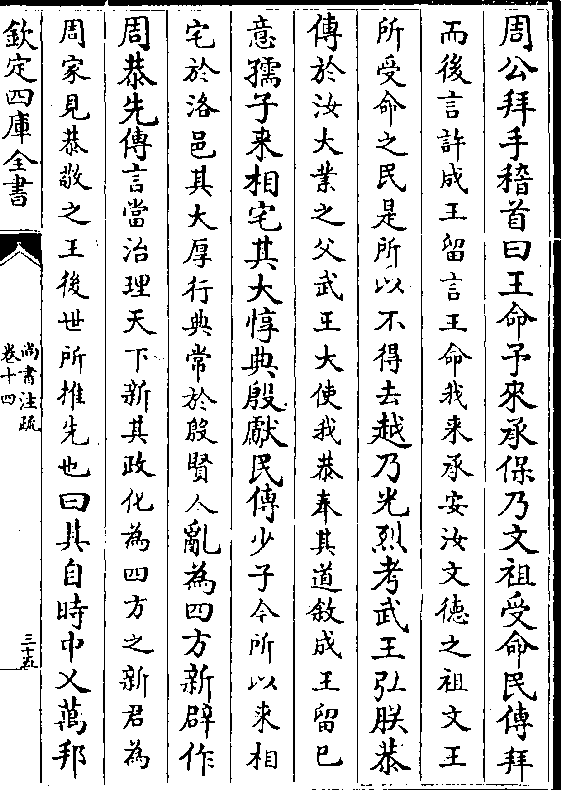 周公拜手稽首曰王命予來承保乃文祖受命民傳拜
而後言許成王留言王命我來承安汝文德之祖文王
所受命之民是所以不得去越乃光烈考武王弘朕恭
傳於汝大業之父武王大使我恭奉其道敘成王留已
意孺子來相宅其大惇典殷獻民傳少子今所以來相
宅於洛邑其大厚行典常於殷賢人亂為四方新辟作
周恭先傳言當治理天下新其政化為四方之新君為
周家見恭敬之王後世所推先也曰其自時中乂萬邦
欽定四庫全書
尚書注疏
卷十四
三十五